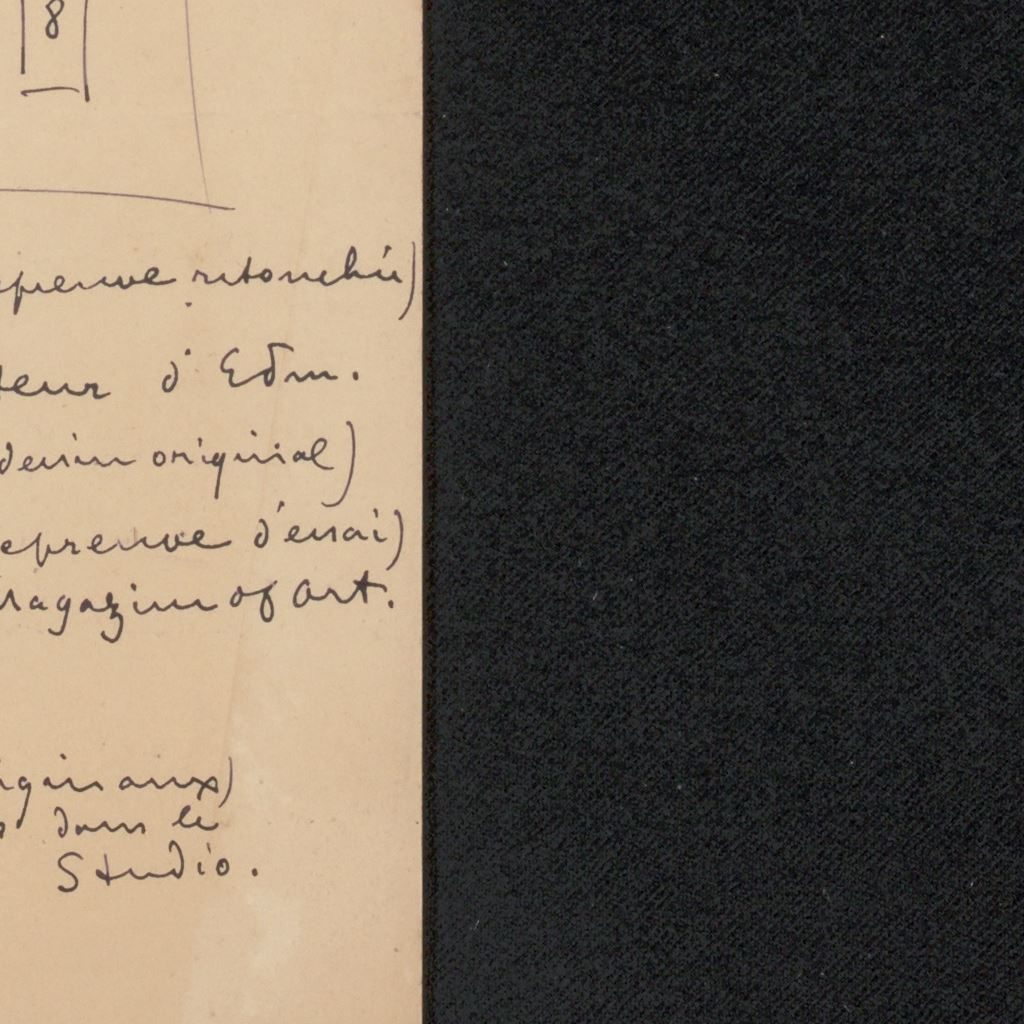 8
epreuve retouchée)
teur d'Edm.
dessin original)
epreuve d'essai)
Magazine of Art.
iginaux)
dans le
Studio.